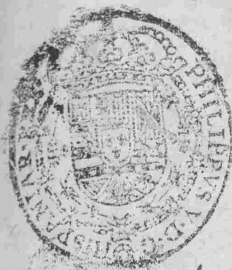 PHILIPPVS V D G HISPANIAR